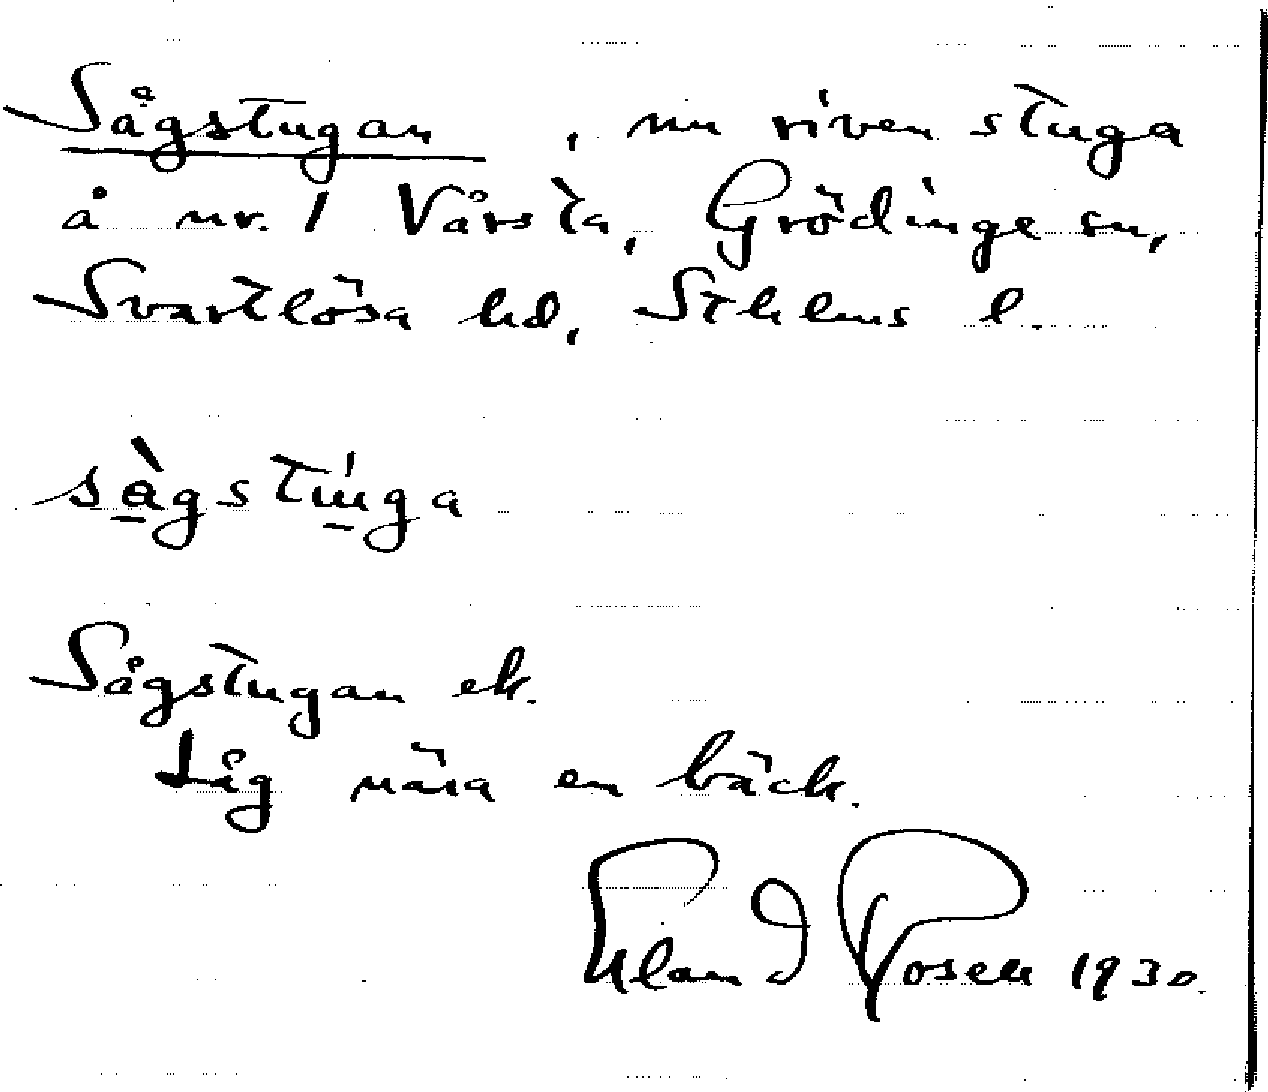 Sågstugan, nu riven stuga
å nr. 1 Vårsta, Grödinge sn,
Svartlösa hd, Sthlms l.
sàgstúga
Sågstugan ek.
Låg nära en bäck.
Rosen 1930.